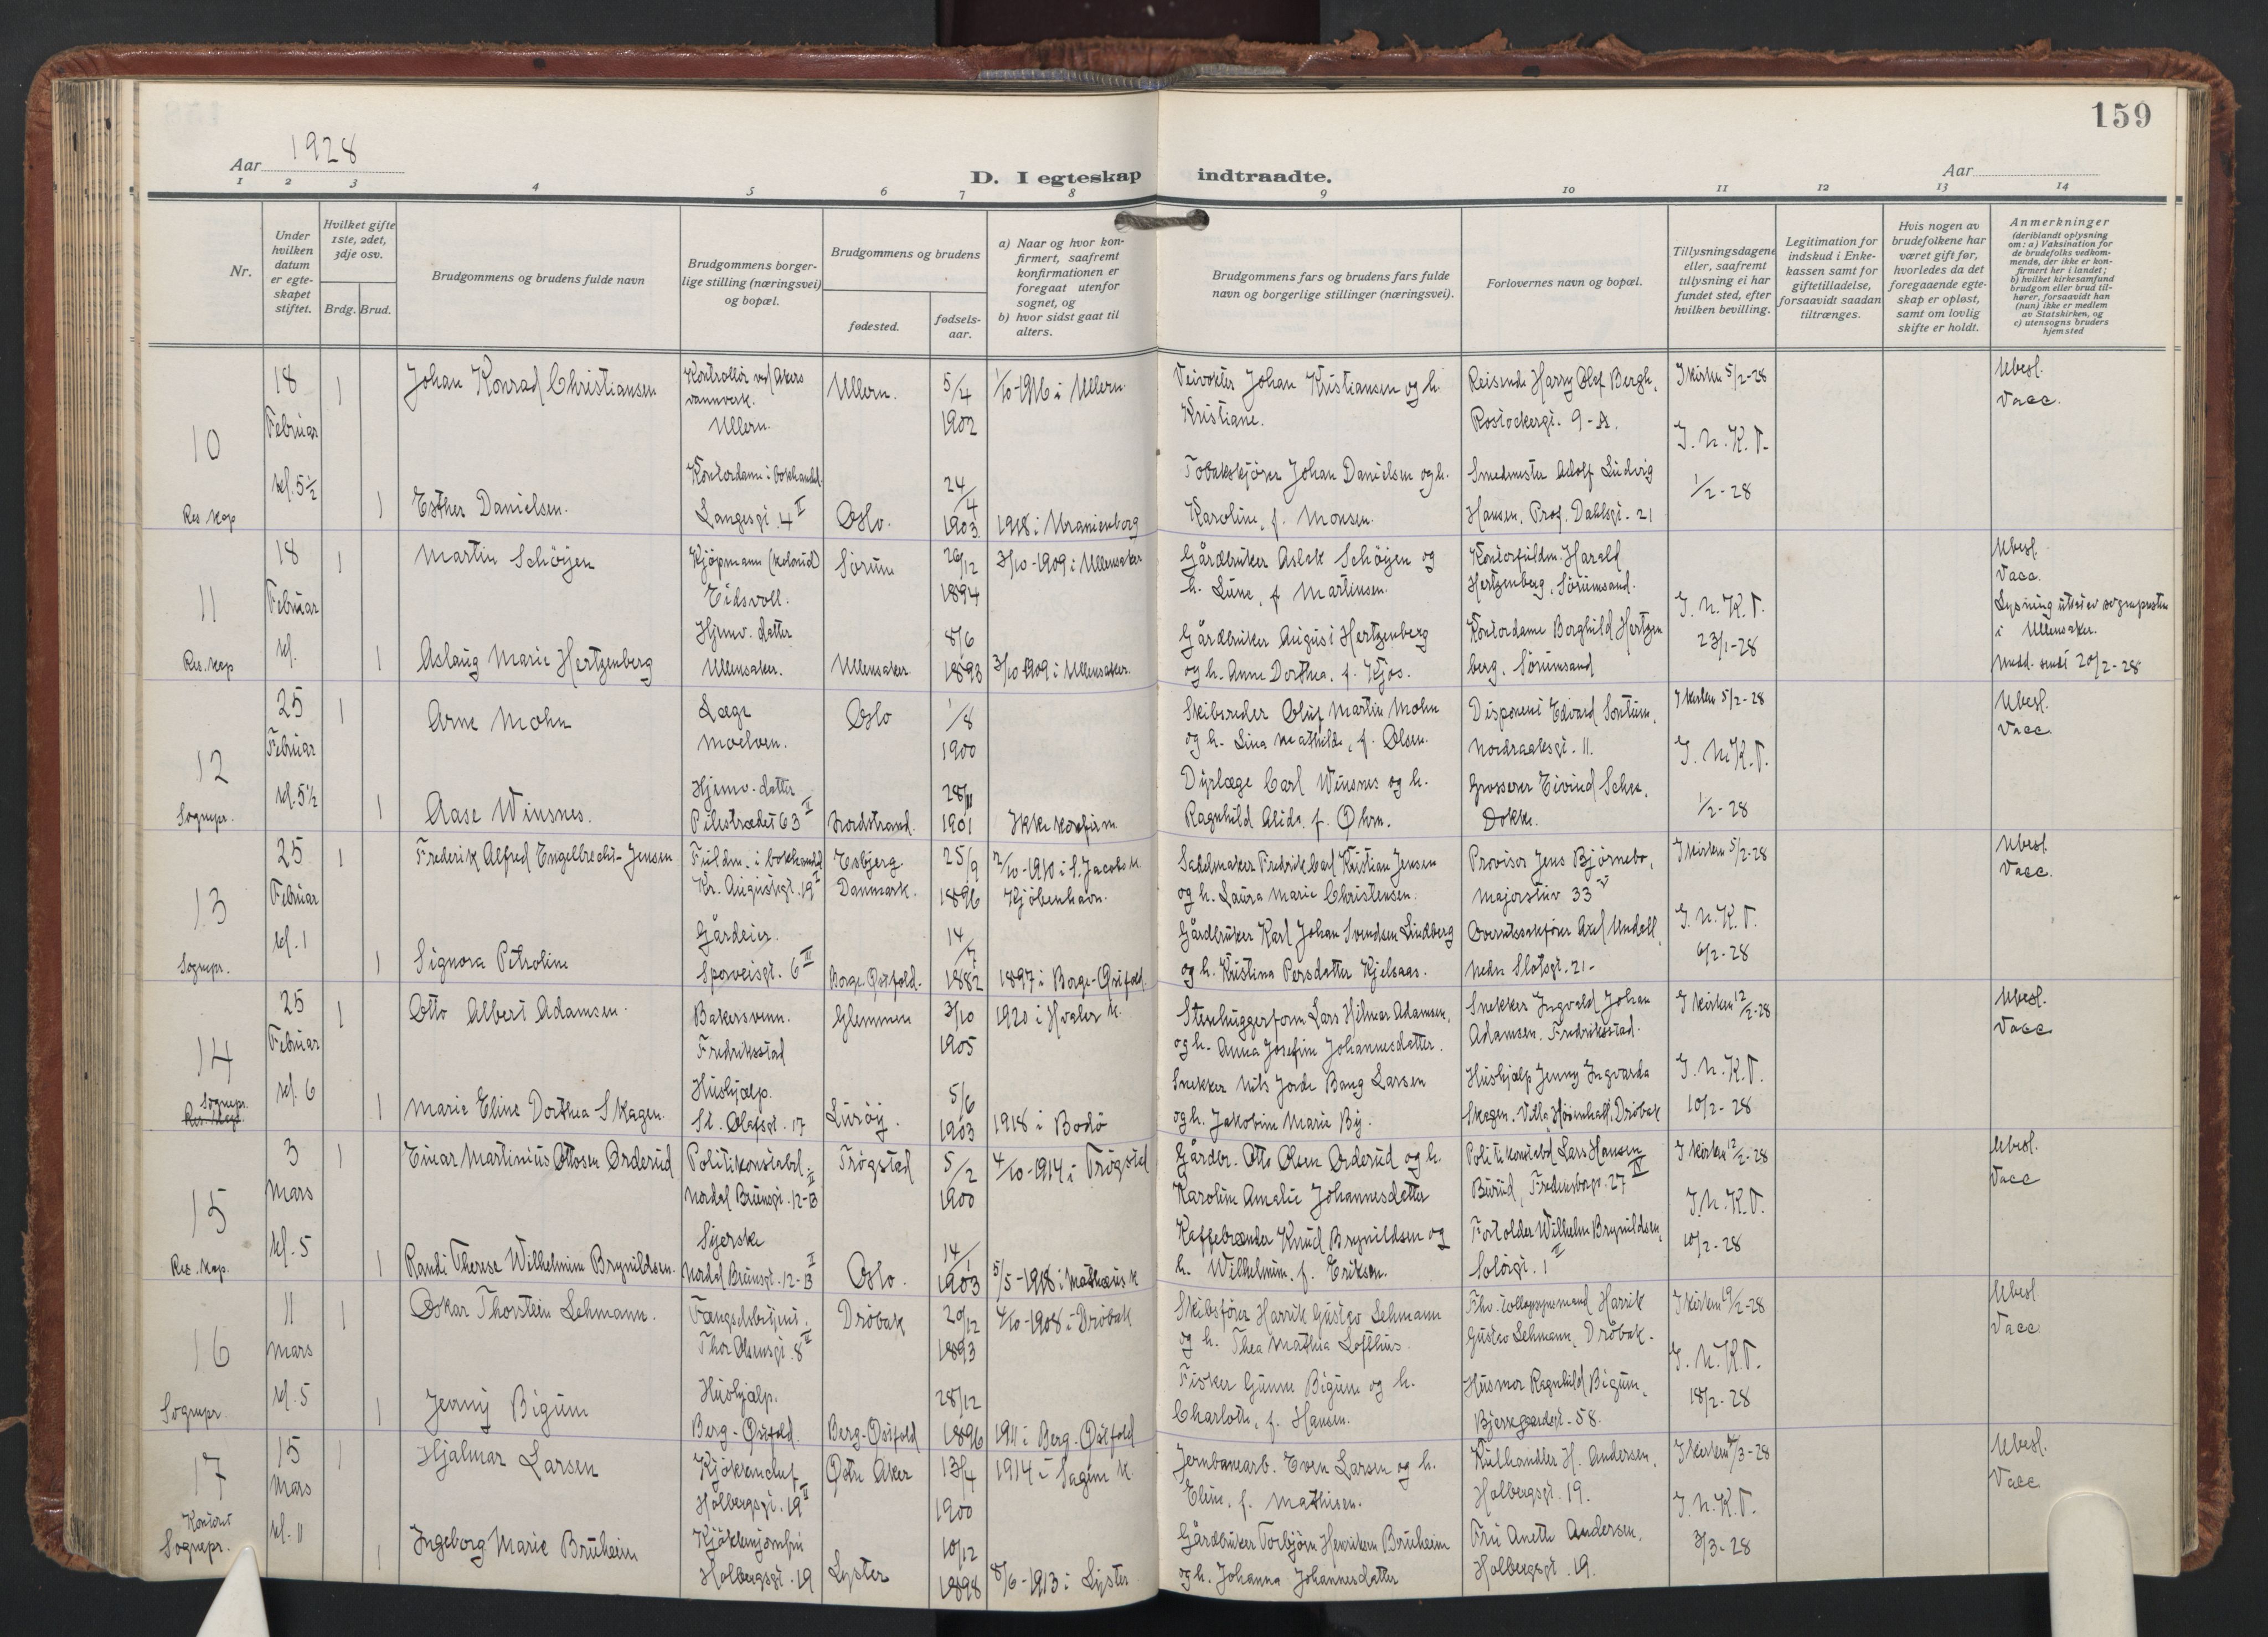 159
Aar 1928
D. I egteskap indtraadte.
Aar
1 2 3 4 5 6 7 8 9 10 11 12 13 14
Nr.
Under hvilken datum er egteskapet stiftet.
Hvilket gifte 1ste, 2det, 3dje osv.
Brdg. Brud.
Brudgommens og brudens fulde navn
Brudgommens borgerlige stilling (næringsvei) og bopæl.
Brudgommens og brudens
fødested.
fødselsaar.
a) Naar og hvor konfirmert, saafremt konfirmationen er foregaat utenfor sognet, og
b) hvor sidst gaat til alters.
Brudgommens fars og brudens fars fulde navn og borgerlige stillinger (næringsvei).
Forlovernes navn og bopæl.
Tillysningsdagene eller, saafremt tillysning ei har fundet sted, efter hvilken bevilling.
Legitimation for indskud i Enkekassen samt for giftetilladelse, forsaavidt saadan tiltrænges.
Hvis nogen av brudefolkene har været gift før, hvorledes da det foregaaende egteskap er opløst, samt om lovlig skifte er holdt.
Anmerkninger
(deriblandt oplysning om: a) Vaksination for de brudefolks vedkommende, der ikke er konfirmert her i landet; b) hvilket kirkesamfund brudgom eller brud tilhører, forsaavidt han (hun) ikke er medlem av Statskirken, og c) utensogns bruders hjemsted
10
Res kap
18 Februar kl. 5½
1
Johan Konrad Christiansen
Kontrollør ved Akers vannverk. Ullern.
Ullern.
5/4 1902
1/10-1916 i Ullern.
Veivokter Johan Kristiansen og h. Kristiane.
Reisende Harry Olof Bergh, Rostockergt. 9-A.
I kirken 5/2-28
Ubesl. Vacc.
1
Esther Danielsen.
Kontordame i bokhandel. Langesgt. 4 II
Oslo.
24/4 1903
1918 i Uranienborg
Tobakskjører Johan Danielsen og h. Karoline, f. Monsen.
Smedmester Adolf Ludvig Hansen, Prof. Dahlsgt. 21
J. N. K. P. 1/2-28
11
Res. kap
18 Februar kl.
1
Martin Schöyen
Kjöpmann (kolonial) Eidsvoll.
Sörum
26/12 1894
3/10-1909 i Ullensaker
Gårdbruker Aslak Schöyen og h. Lune, f. Martinsen.
Kontorfuldm. Harald Hertzenberg, Sörumsand.
Ubesl. Vacc.
1
Aslaug Marie Hertzenberg
Hjemv. datter Ullensaker.
Ullensaker.
8/6 1893
3/10 1909 i Ullensaker.
Gårdbruker August Hertzenberg og h. Anne Dorthea, f. Kjos.
Kontordame Borghild Hertzenberg, Sörumsand
J. N. K. P. 23/1-28
Lysning utført av sognepresten i Ullensaker.
Medd. sendt 20/2-28
12
Sognepr.
25 Februar kl. 5½
1
Arne Mohn
Læge Moelven.
Oslo
1/8 1900
Skibsreder Oluf Martin Mohn og h. Lina Mathilde, f. Olsen.
Disponent Edvard Sontum, Nordraaksgt. 11.
I kirken 5/2-28
Ubesl. Vacc.
1
Aase Winsnes.
Hjemv. datter Pilestrædet 63 II
Nordstrand.
28/11 1901
Ikke konfirm.
Dyrlæge Carl Winsnes og h. Ragnhild Alida, f. Öhrn.
Grosserer Eivind Dokke.
J. N. K. P. 1/2-28
13
Sognepr.
25 Februar kl. 1
1
Frederik Alfred Engelbrecht-Jensen
Fuldm. i bokhandel Kr. Augustsgt. 19 I
Esbjerg Danmark.
25/9 1896
2/10-1910 i S. Jacobs K. Kjöbenhavn.
Sadelmaker Fredrik Carl Kristian Jensen og h. Laura Marie Christensen.
Provisor Jens Bjørnebo, Majorstuv 33 V
I kirken 5/2-28
Ubesl. Vacc.
1
Signora Petroline
Gårdeier. Sporveisgt. 6 III
Borge-Østfold.
14/7 1882
1897 i Borge-Østfold.
Gårdbruker Karl Johan Svendsen Lindberg og h. Kristina Persdatter Kjelsaas.
Overretssakfører Axel Undall, Nedre Slotsgt. 21
J. N. K. P. 6/2-28
14
Sognepr.
Res. kap.
25 Februar kl. 6
1
Otto Albert Adamsen.
Bakersvenn. Fredriksstad
Glemmen
3/10 1905
1920 i Hvaler K.
Stenhuggerform Lars Hilmar Adamsen, og h. Anna Josefine Johannesdatter.
Snekker Ingvald Johan Adamsen, Fredriksstad.
I kirken 12/2-28
Ubesl. Vacc
1
Marie Eline Dorthea Skagen
Hushjælp. St. Olafsgt. 17
Luröy.
5/6 1903
1918 i Bodö
Snekker Nils Jorde Bang Larsen og h. Jakobine Marie By.
Hushjælp Jenny Ingvarda Skagen, Villa Höienhall, Dröbak
J. N. K. P. 10/2-28
15
Res. kap.
3 Mars kl. 5
1
Einar Martinius Ottosen Orderud
Politikonstabel. Nordal Brunsgt. 12-B II
Trögstad
5/2 1900
4/10-1914 i Trögstad
Gårdbr. Otto Olsen Orderud og h. Karoline Amalie Johannesdatter
Politikonstabel Lars Hansen Burud, Fredensborgv. 27 IV
I kirken 12/2-28
Ubesl. Vacc
1
Randi Therese Wilhelmine Brynildsen.
Syerske Nordal Brunsgt. 12-B II
Oslo.
14/1 1903
5/5-1918 i Mathæus K
Kaffebrænder Knud Brynildsen og h. Wilhelmine, f. Eriksen.
Wilhelm Brynildsen, Solörgt. 1 II
J. N. K. P. 10/2-28
16
Sognepr.
11 Mars kl. 5
1
Oskar Thorstein Lehmann.
Fængselsbetjent. Thor Olsensgt. 8 II
Dröbak
20/12 1893
4/10-1908 i Dröbak
Skibsförer Harrik Gustav Lehmann og h. Thea Mathea Lofthus.
Fhv. tollopsynsmand Harrik Gustav Lehmann, Dröbak.
I kirken 19/2-28
Ubesl Vacc
1
Jenny Bigum
Hushjælp. Berg-Østfold.
Berg-Østfold
28/12 1896
1911 i Berg-Østfold
Fisker Gunne Bigum og h. Charlotte, f. Hansen.
Husmor Ragnhild Bigum, Bjerregaardsgt. 58.
J. N. K. P. 18/2-28
17
Kontoret
Sognepr.
15 Mars kl. 11
1
Hjalmar Larsen
Kjökkenchef Holbergsgt. 19 II
Østre Aker
13/4 1900
1914 i Sagene K.
Jernbanearb. Even Larsen og h. Eline, f. Mathisen.
Kulhandler H. Andersen, Holbergsgt. 19.
I kirken 4/3-28
Ubesl. Vacc
1
Ingeborg Marie Bruheim
Kjökkenjomfru Holbergsgt. 19
Lyster
10/12 1898
8/6-1913 i Lyster
Gårdbruker Torbjörn Henriksen Bruheim og h. Johanna Johannesdatter
Fru Anette Andersen, Holbergsgt. 19.
J. N. K. P. 3/3-28